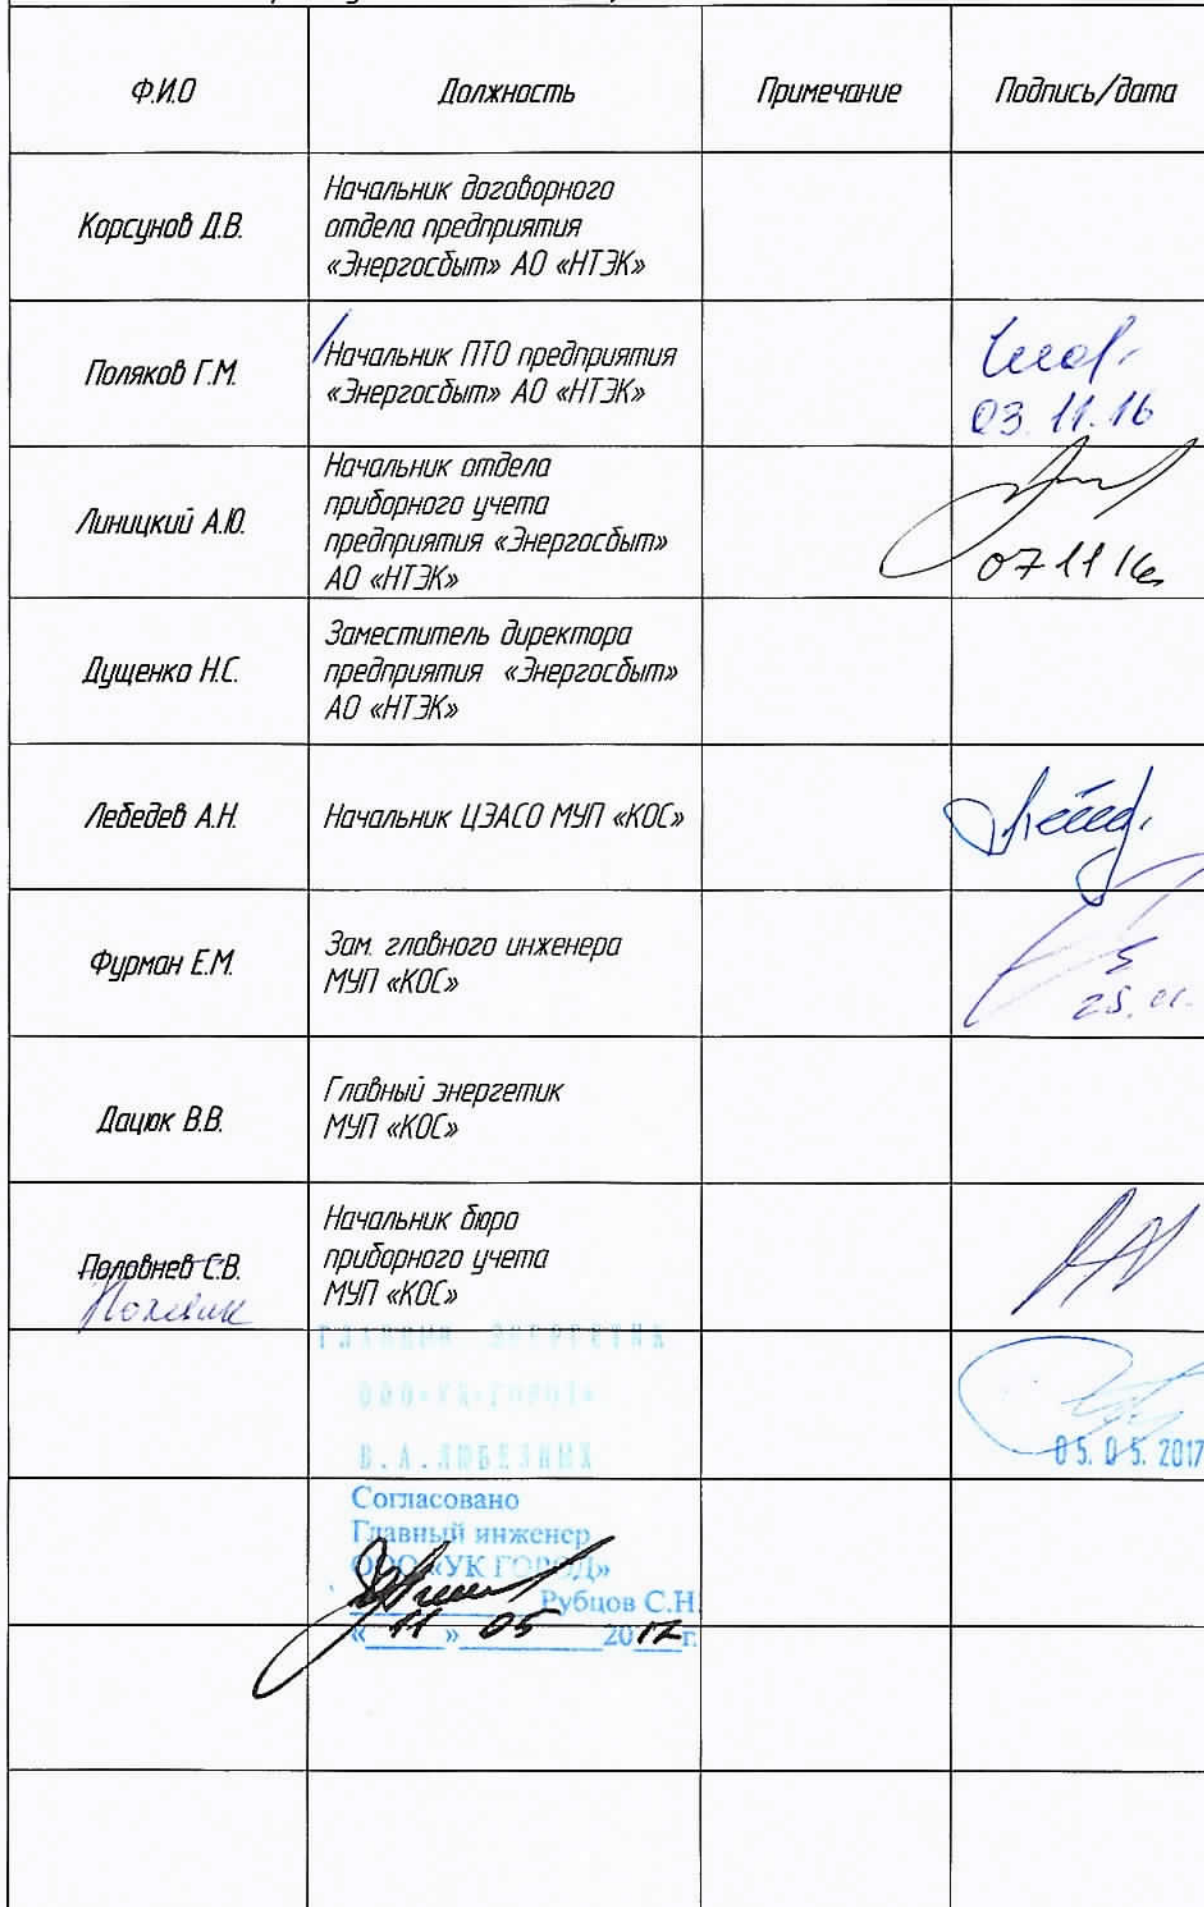 Ф.И.О
Должность
Примечание
Подпись/дата
Корсунов Д.В.
Начальник договорного
отдела предприятия
«Энергосбыт» АО «НТЭК»
Поляков Г.М.
Начальник ПТО предприятия
«Энергосбыт» АО «НТЭК»
03.11.16
Линицкий А.Ю.
Начальник отдела
приборного учета
предприятия «Энергосбыт»
АО «НТЭК»
07 11 16
Дущенко Н.С.
Заместитель директора
предприятия «Энергосбыт»
АО «НТЭК»
Лебедев А.Н.
Начальник ЦЭАСО МУП «КОС»
Фурман Е.М.
Зам. главного инженера
МУП «КОС»
Дацюк В.В.
Главный энергетик
МУП «КОС»
Половнев С.В.
Начальник бюро
приборного учета
МУП «КОС»
ГЛАВНЫЙ ЭНЕРГЕТИК
ООО «УК ГОРОД»
В.А. ЛЮБЕЗНЫХ
05.05.2017
Согласовано
Главный инженер
ООО «УК ГОРОД»
Рубцов С.Н.
« 11 » 05 2017 г.